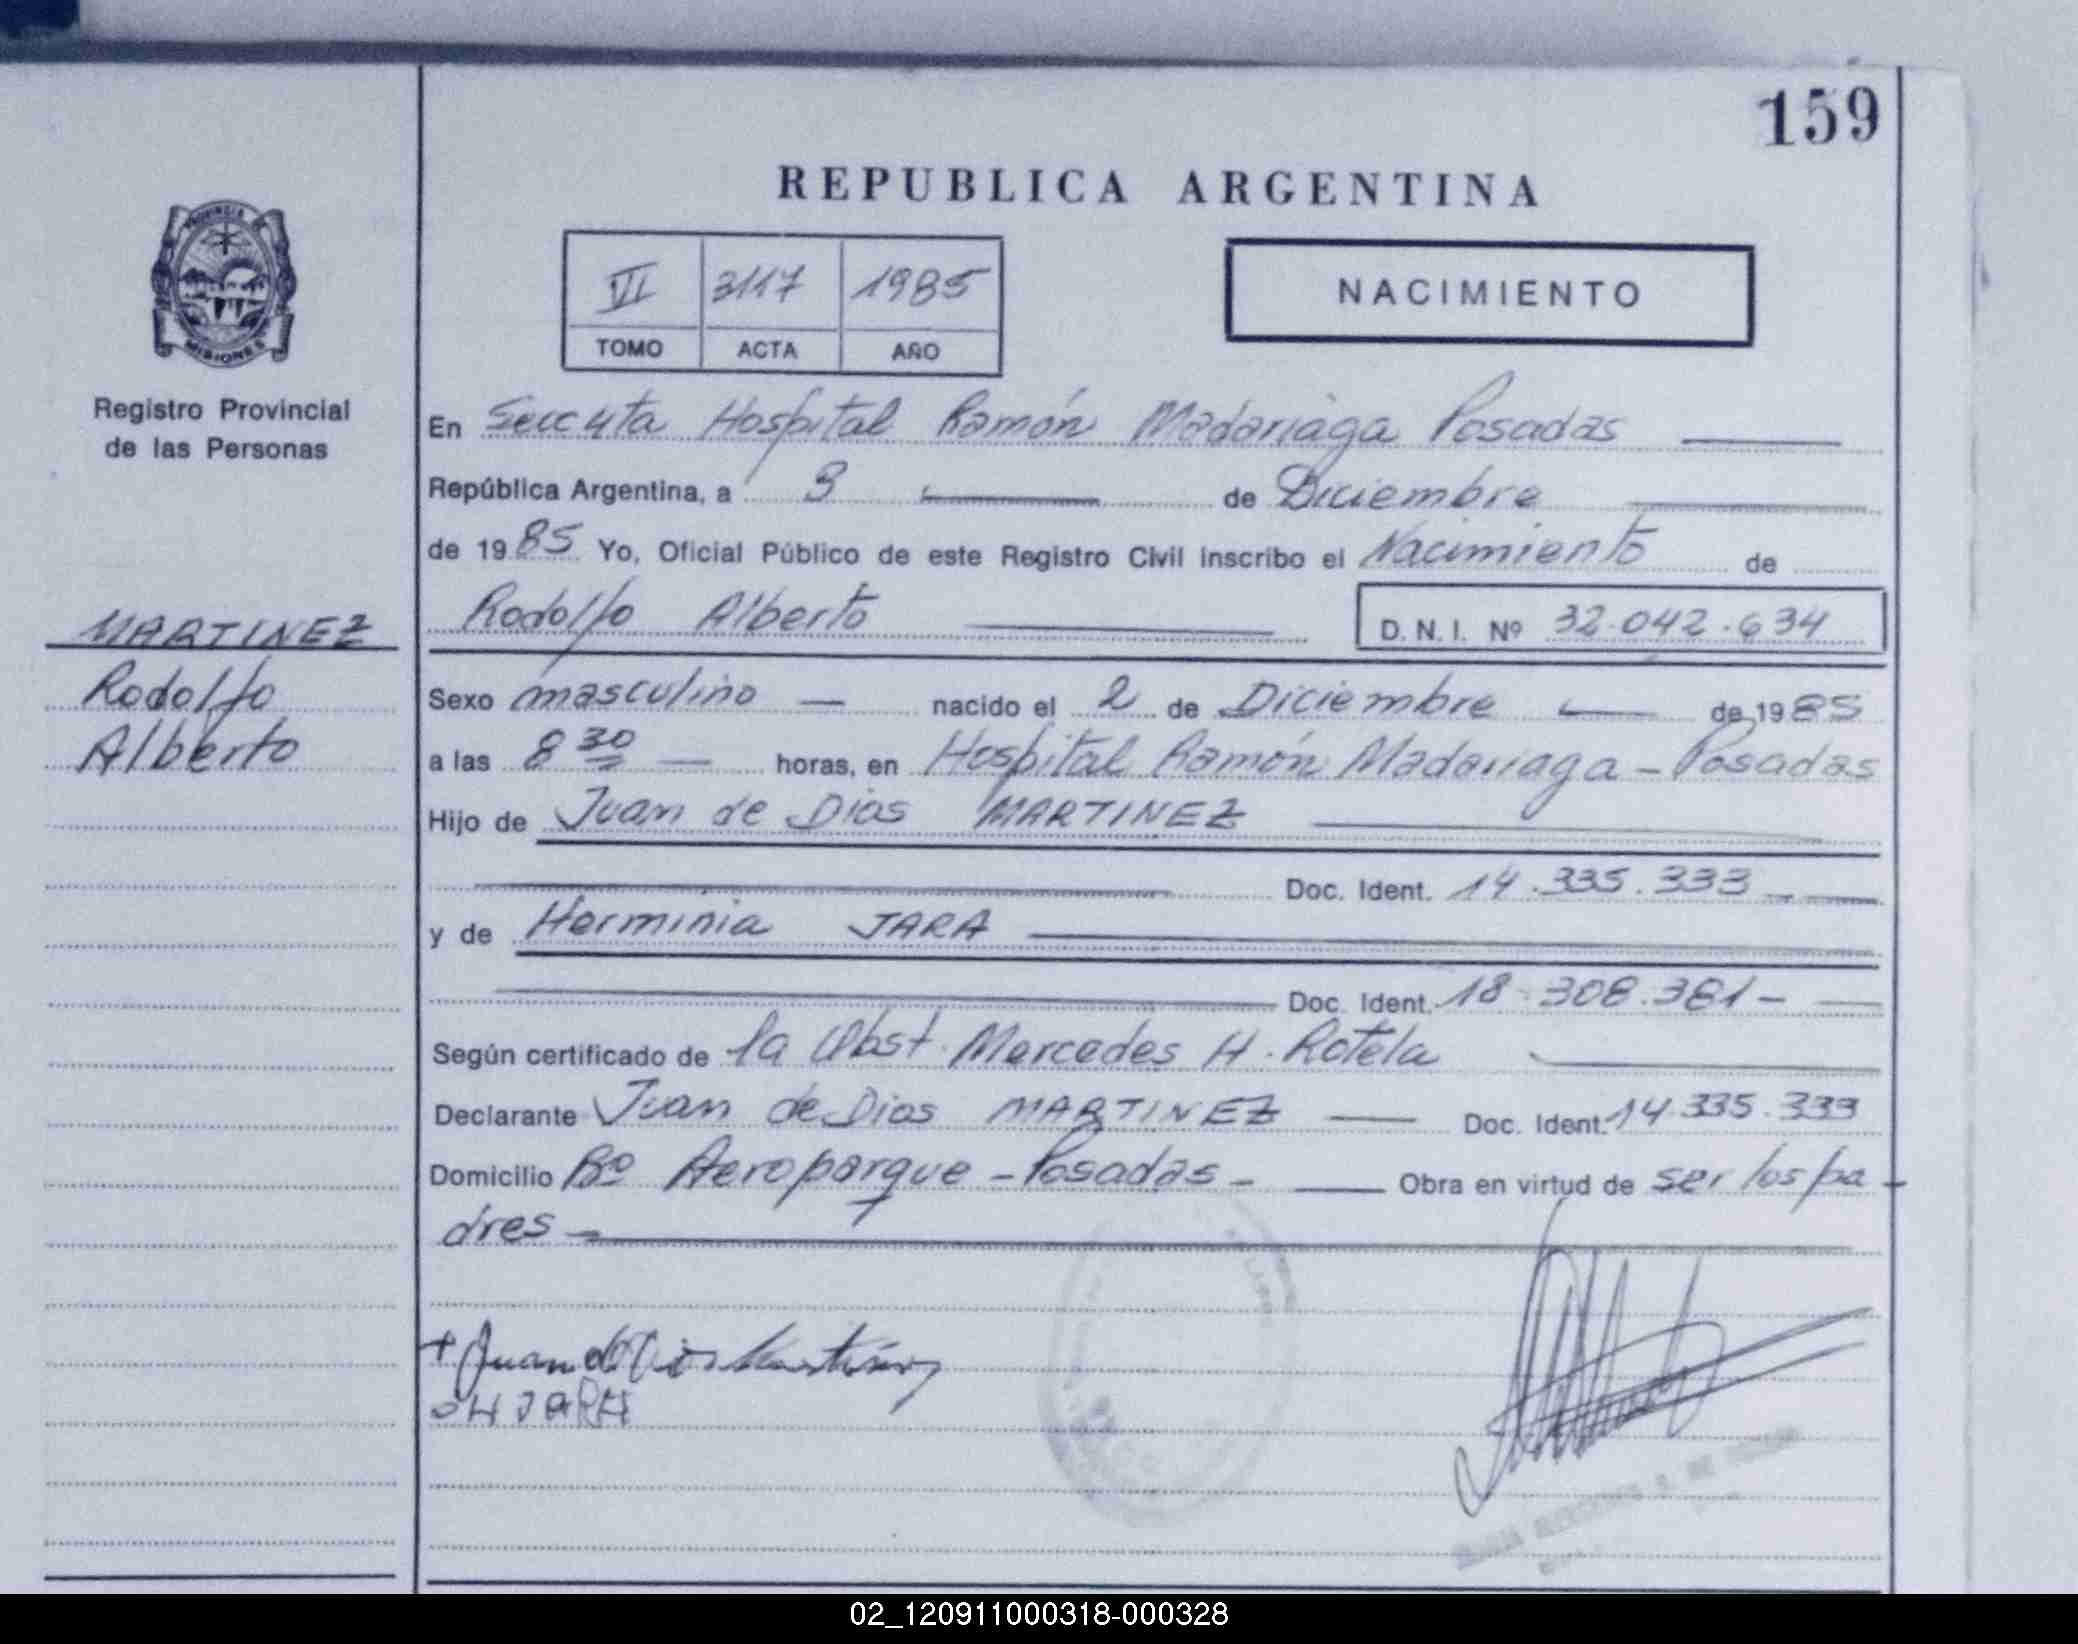 159
REPUBLICA ARGENTINA
VI 3117 1985
TOMO ACTA AÑO
NACIMIENTO
PROVINCIA DE
MISIONES
Registro Provincial
de las Personas
MARTINEZ
Rodolfo
Alberto
En Secc 4ta Hospital Ramón Madariaga Posadas
República Argentina, a 3 de Diciembre
de 1985 Yo, Oficial Público de este Registro Civil inscribo el Nacimiento de
Rodolfo Alberto D.N.I. Nº 32.042.634
Sexo masculino — nacido el 2 de Diciembre de 1985
a las 8 30 — horas, en Hospital Ramón Madariaga - Posadas
Hijo de Juan de Dios MARTINEZ
Doc. Ident. 14.335.333
y de Herminia JARA
Doc. Ident. 18.308.381 -
Según certificado de la Obst. Mercedes H. Rotela
Declarante Juan de Dios MARTINEZ — Doc. Ident. 14.335.333
Domicilio Bº Aeroparque - Posadas - Obra en virtud de ser los pa-
dres -
+ Juan de Dios Martinez
H JARA
02_120911000318-000328